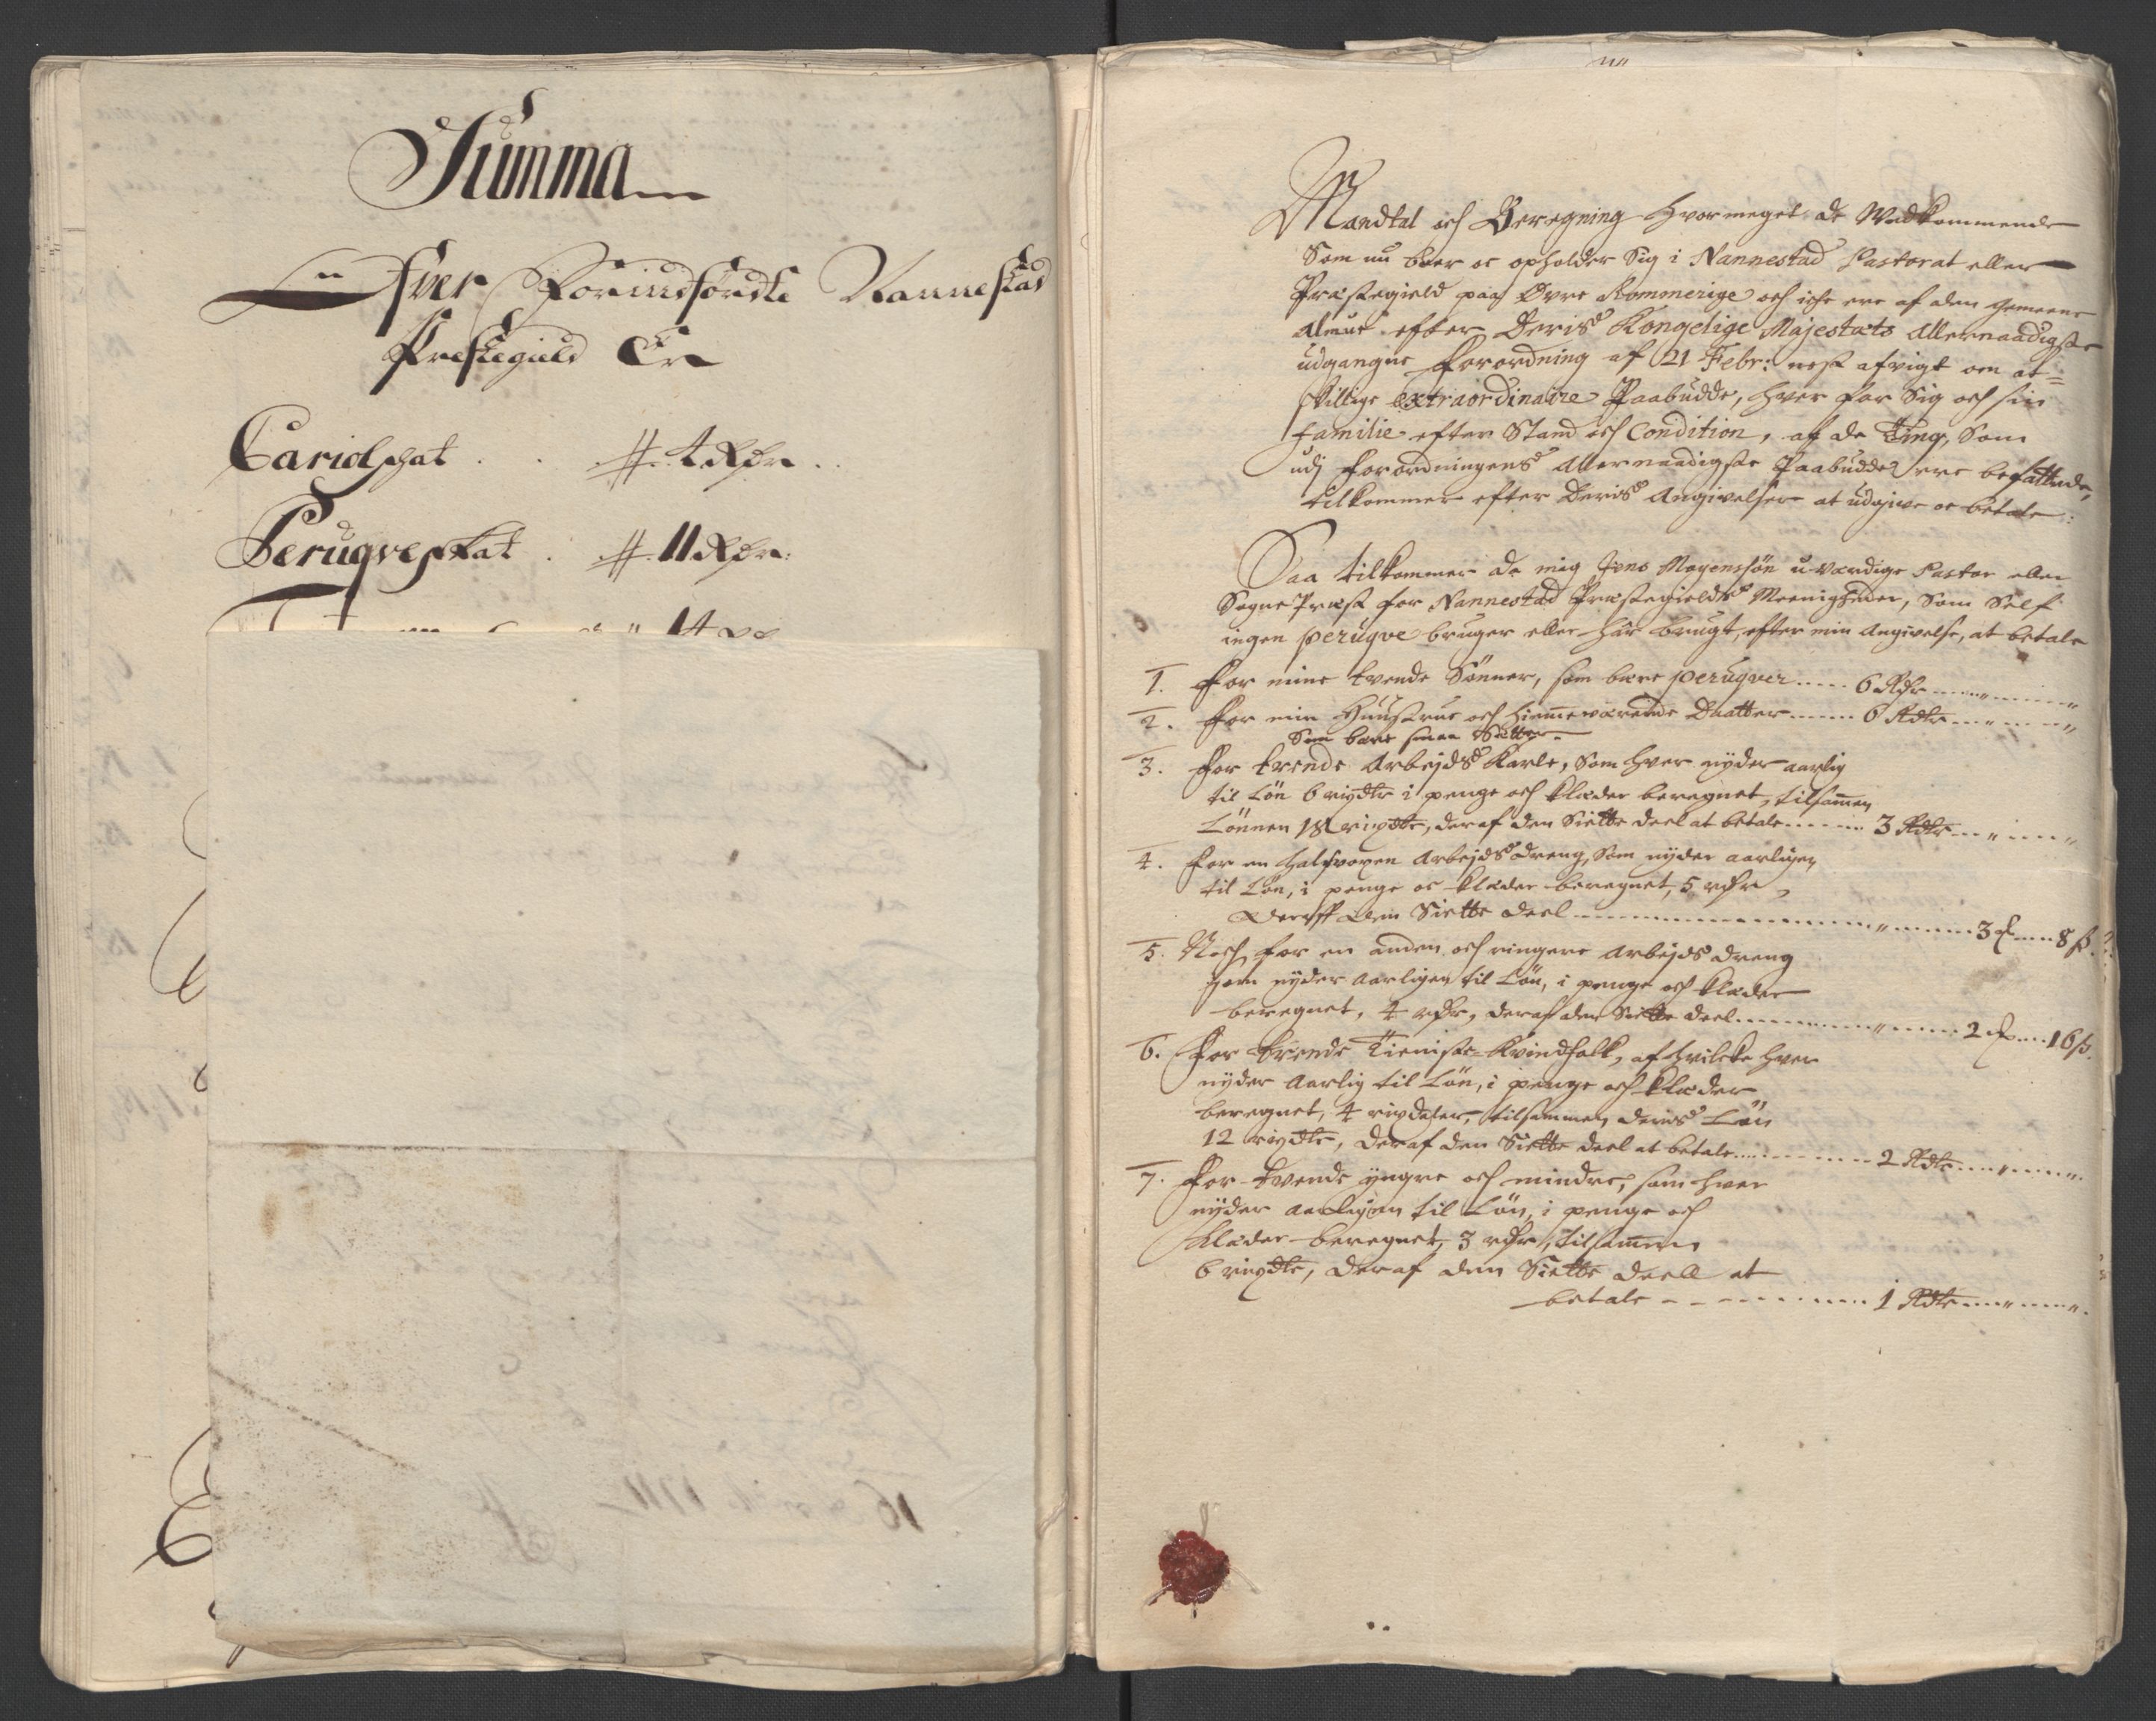 Summa
Ofver Forindførdte Nannestad
Prestegield Er
Cariolschat . . # 4 Rdr. .
Peruqveskat . # 11 Rdr:
Mandtal och Beregning hvormeget de Wedkommende
Som nu boer oc opholder Sig i Nannestad Pastorat eller
Præstegield paa Øvre Rommerige och iche ere af den gemeene
Almue efter Deris Kongelige Majestæts Allernaadigste
udgangne Forordning af 21 Febr: nest afvigt om at=
skillige extraordinaire Paabudde, hver for Sig och sin
familie efter Stand och Condition, af de Ting, Som
udj Forordningens Allernaadigste Paabudde ere befattede,
tilkommer efter Deris Angivelser at udgive oc betale:
Saa tilkommer da mig Jens Mogenssøn u-værdige Pastor eller
Sogne Præst for Nannestad Præstegields Meenigheder, Som Self
ingen peruqve bruger eller har brugt, efter min Angivelse, at betale
1. For mine tvende Sønner, som bære peruqver ..... 6 Rdr ..... " ..... "
2. For min Huustrue och hiemmeværende Daatter ..... 6 Rdr ... " ..... "
Som bære smaa Sætter.
3. For trende Arbejds Karle, Som hver nyder aarlig
til Løn 6 rixdlr i penge och klæder beregnet, tilsammen
Lønnen 18 rixdlr, deraf den Siette deel at betale ..... 3 Rdlr ... " ..... "
4. For en halfvoxen Arbejds dreng, Som nyder aarligen
til Løn, i penge oc klæder beregnet, 5 rdr,
Deraff den Siette deel ..... " ..... 3 ..... 8 s.
5. Noch for en anden och ringere Arbejds dreng
som nyder Aarligen til Løn, i penge och klæder
beregnet, 4 rdr, deraf den Siette deel ..... " ..... 2 ..... 16 s.
6. For trende Tieniste-Kvindfolk, af hvilcke hver
nyder Aarlig til Løn, i penge och klæder
beregnet, 4 rixdaler, tilsammen deris Løn
12 rixdlr, deraf den Siette deel at betale ..... 2 Rdlr ..... " ..... ".
7. For tvende yngre och mindre, som hver
nyder aarligen til Løn, i penge och
klæder beregnet, 3 rdr, tilsammen
6 rixdlr, deraf den Siette deell at
betale - - - ..... 1 Rdlr ..... " ..... ".